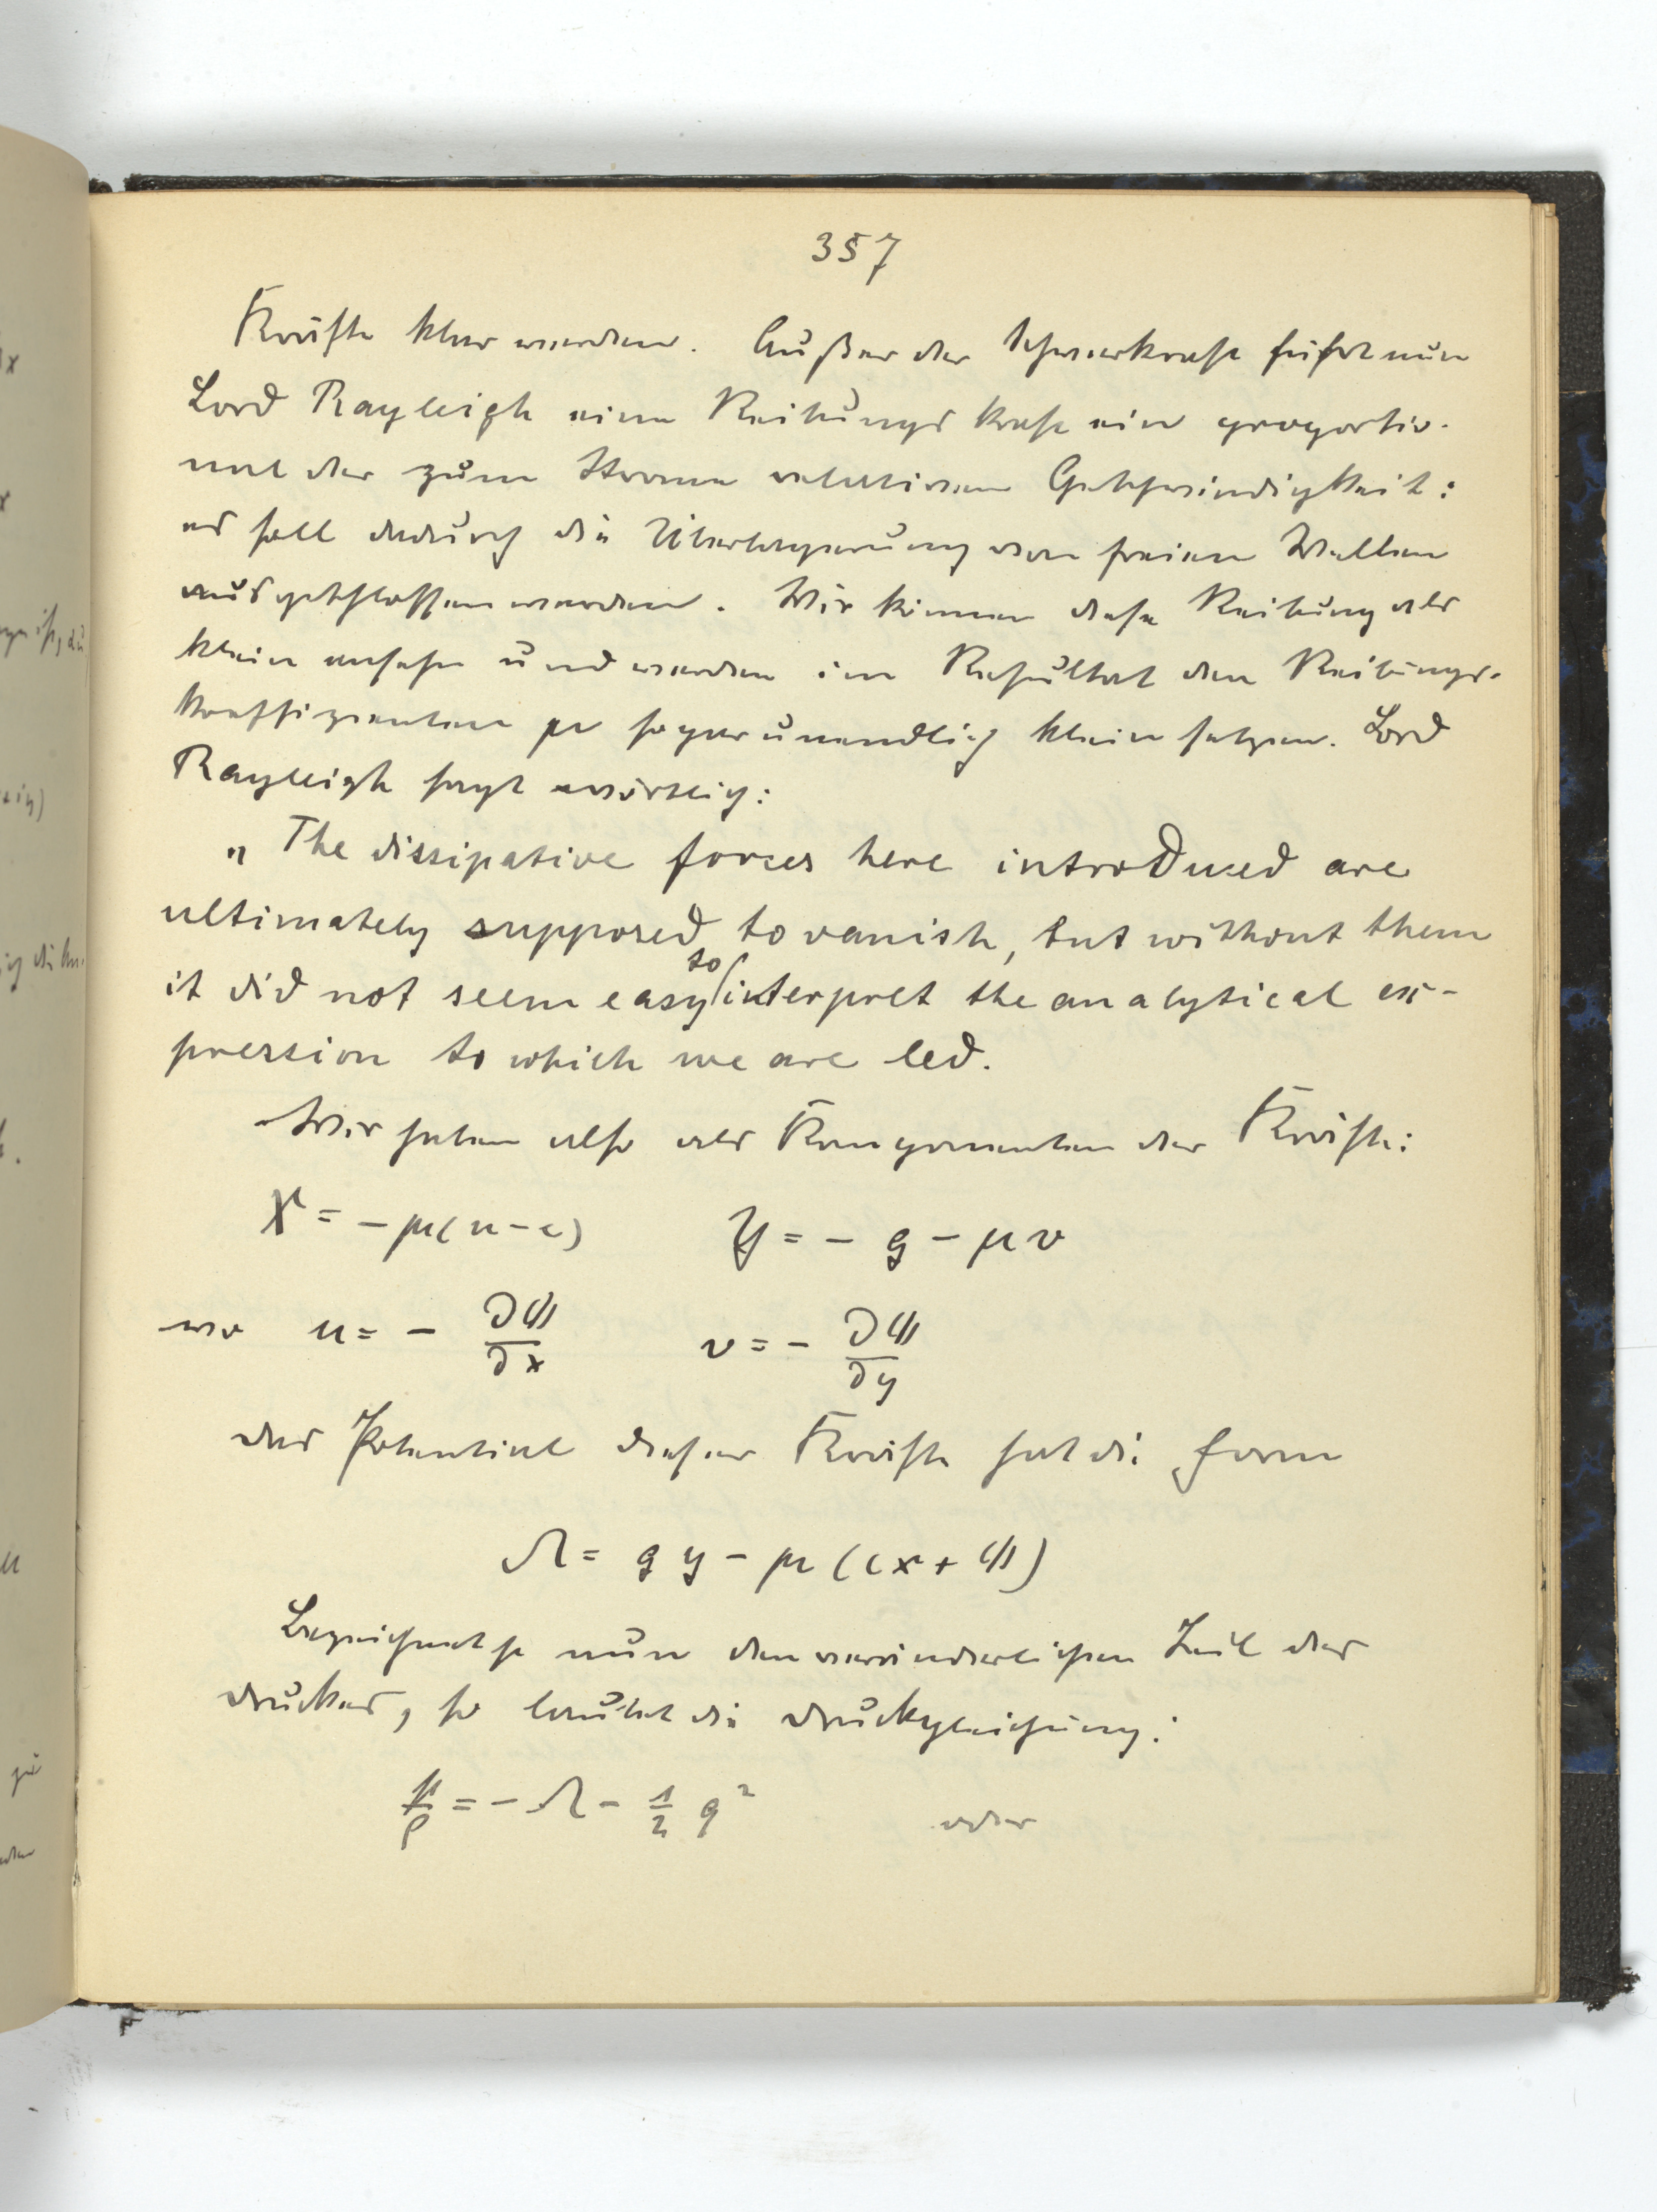 357
Kräfte klar werden. Außer der Schwerkraft führt nun
Lord Rayleigh eine Reibungskraft ein proportio-
nal der zum Strome relativen Geschwindigkeit:
es soll dadurch die Überlagerung von freien Wellen
ausgeschlossen werden. Wir können diese Reibung als
klein ansehn und werden im Resultat den Reibungs-
koeffizienten μ sogar unendlich klein setzen. Lord
Rayleigh sagt wörtlich:
„The dissipative forces here introduced are
ultimately supposed to vanish, but without them
it did not seem easy to interpret the analytical ex-
pression to which we are led.
Wir haben also als Komponenten der Kräfte:
X = - μ(u - c) Y = - g - μ v
wo u = - ∂φ/∂x v = - ∂φ/∂y
das Potential dieser Kräfte hat die Form
Ω = g y - μ (cx + φ)
Bezeichnet p nun den veränderlichen Teil des
Druckes, so lautet die Druckgleichung:
p/ρ = - Ω - 1/2 q² oder